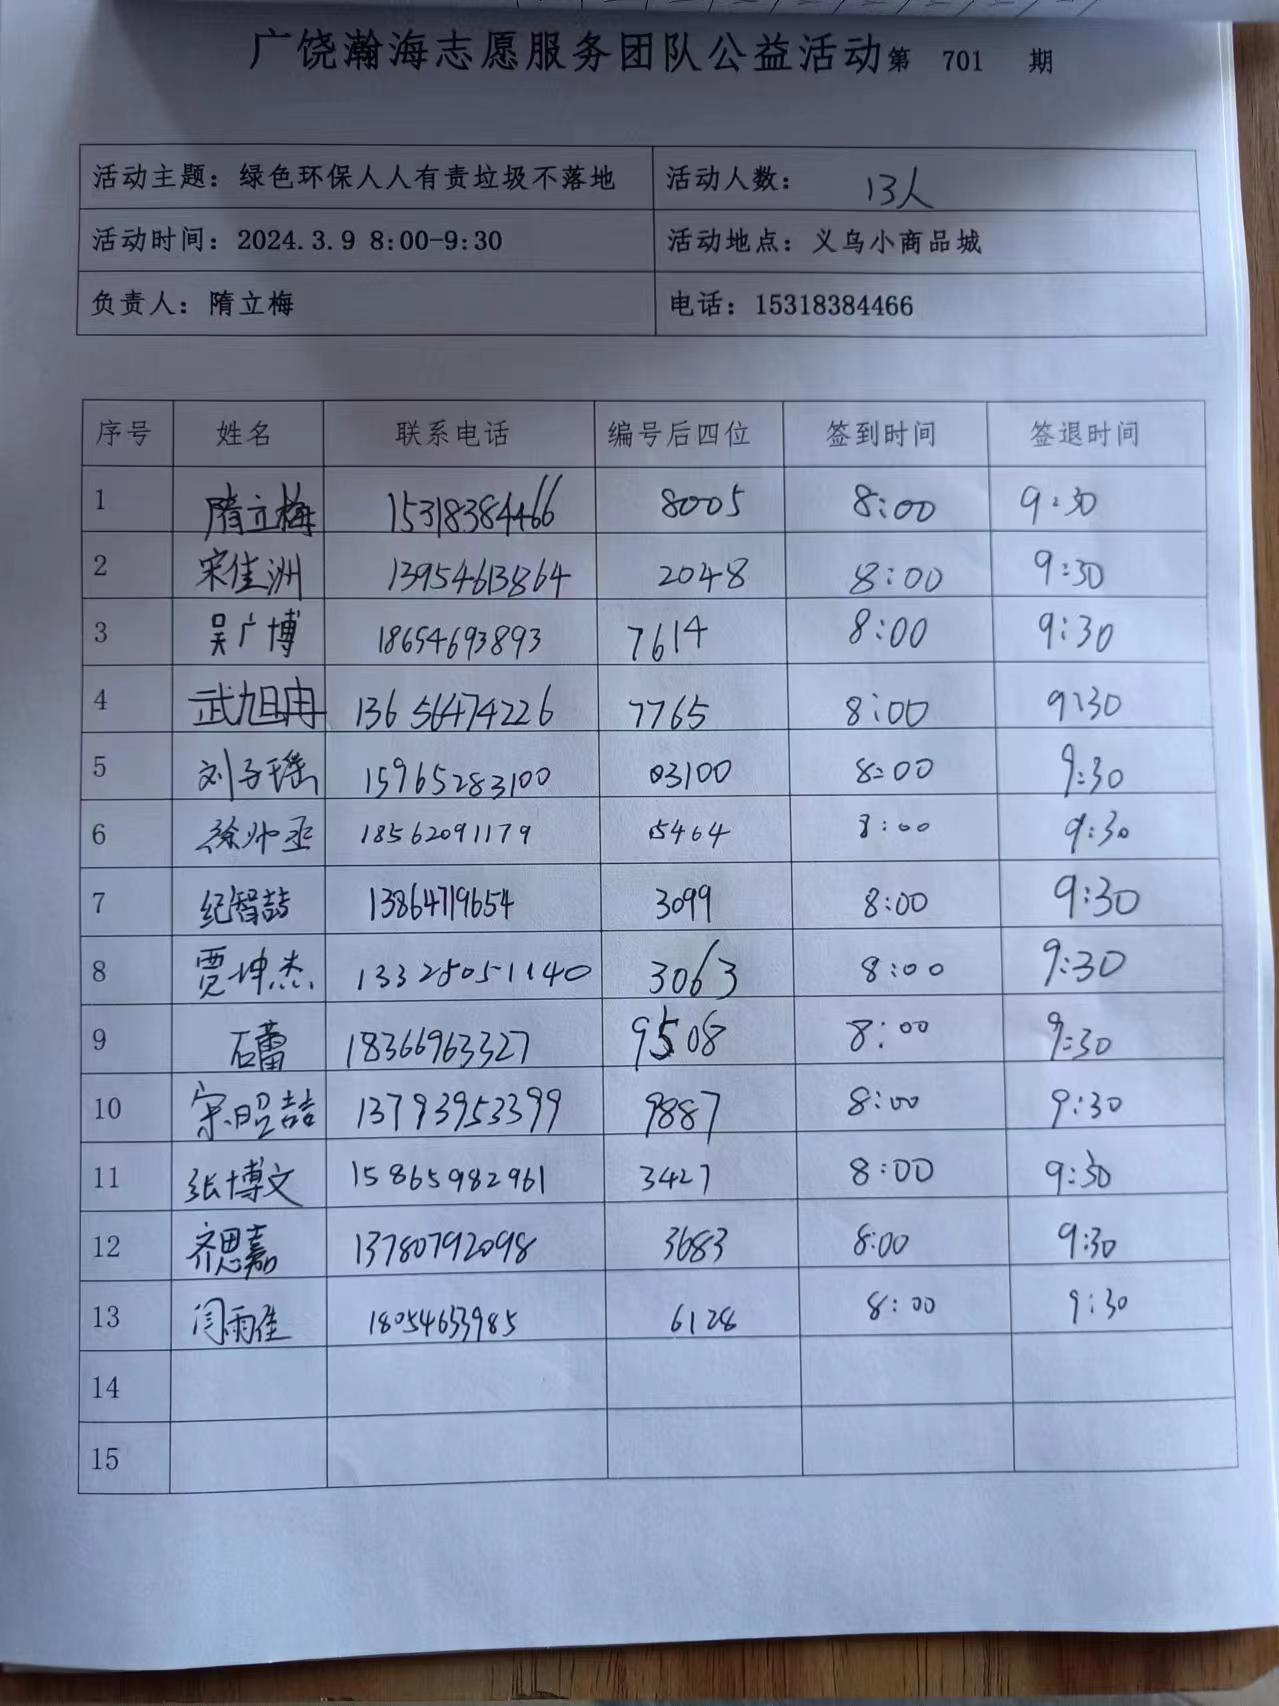 广饶瀚海志愿服务团队公益活动第 701 期
活动主题：绿色环保人人有责垃圾不落地 活动人数： 13人
活动时间：2024.3.9 8:00-9:30 活动地点：义乌小商品城
负责人：隋立梅 电话：15318384466
序号 姓名 联系电话 编号后四位 签到时间 签退时间
1 隋立梅 15318384466 8005 8:00 9:30
2 宋佳洲 13954613864 2048 8:00 9:30
3 吴广博 18654693893 7614 8:00 9:30
4 武旭冉 13656474226 7765 8:00 9:30
5 刘子瑶 15965283100 03100 8:00 9:30
6 徐帅丞 18562091179 5464 8:00 9:30
7 纪智喆 13864719654 3099 8:00 9:30
8 贾坤杰 13325051140 3063 8:00 9:30
9 石蕾 18366963327 9508 8:00 9:30
10 宗昭喆 13793953399 9887 8:00 9:30
11 张博文 15865982961 3427 8:00 9:30
12 齐思嘉 13780792098 3683 8:00 9:30
13 闫雨佳 18054633985 6128 8:00 9:30
14
15